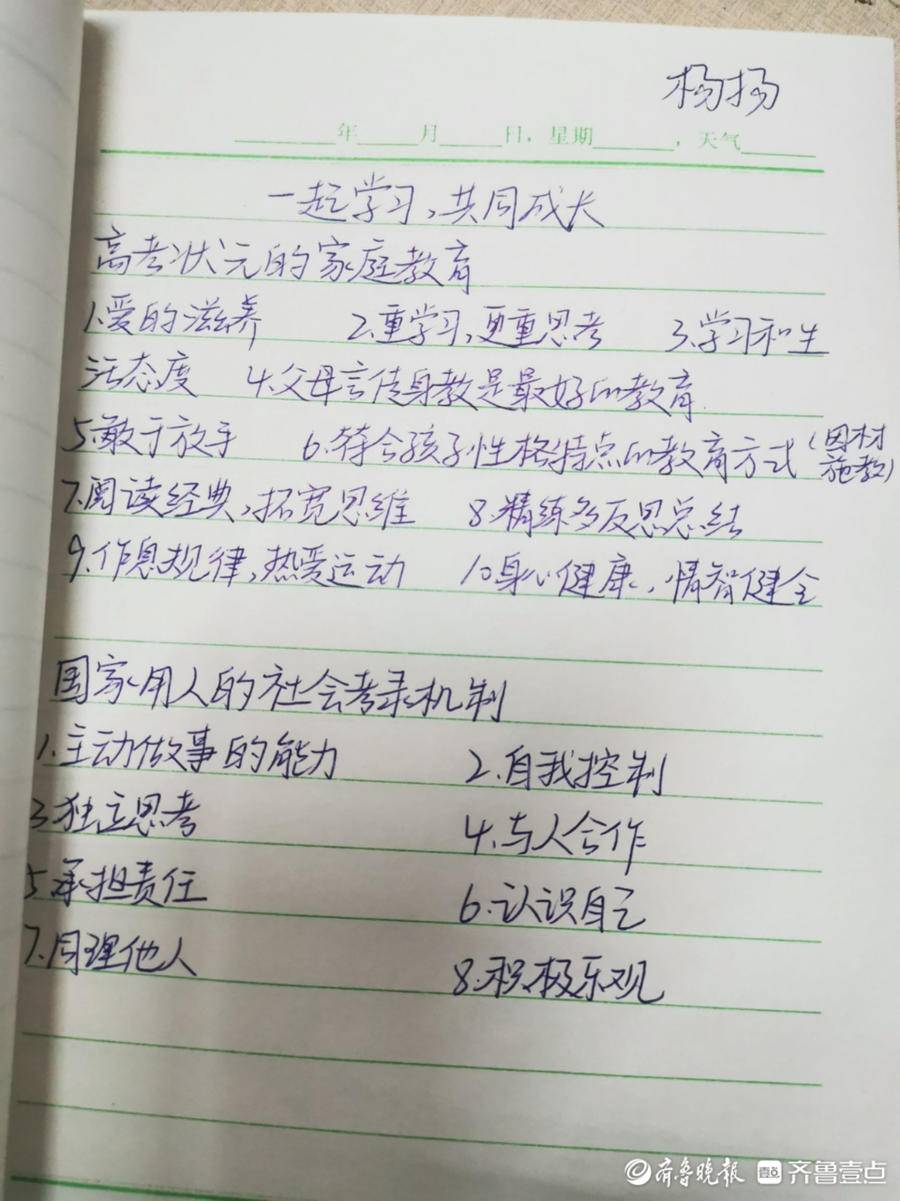 杨扬
年 月 日，星期 ，天气
一起学习，共同成长
高考状元的家庭教育
1.爱的滋养 2.重学习，更重思考 3.学习和生
活态度 4.父母言传身教是最好的教育.
5.敢于放手 6.符合孩子性格特点的教育方式（因材
施教）
7.阅读经典，拓宽思维 8.精练多反思总结
9.作息规律，热爱运动 10.身心健康，情智健全
国家用人的社会考录机制
1.主动做事的能力 2.自我控制
3.独立思考 4.与人合作
5.承担责任 6.认识自己
7.同理他人 8.积极乐观
齐鲁晚报 壹点 齐鲁壹点